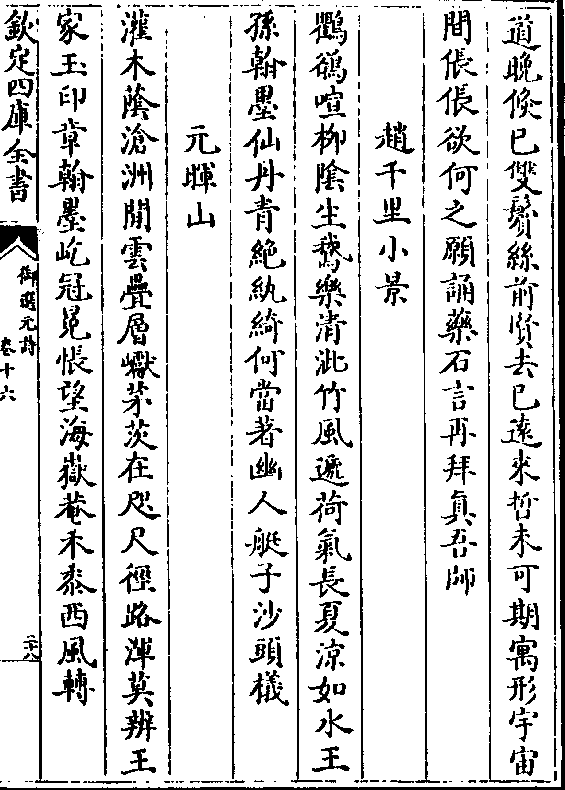 道晚倏已雙鬢絲前賢去已遠來哲未可期寓形宇宙
間倀倀欲何之願誦藥石言再拜真吾師
趙千里小景
鸛鵒喧柳陰生鵝樂清泚竹風遞荷氣長夏涼如水王
孫翰墨仙丹青絶紈綺何當著幽人艇子沙頭檥
元暉山
灌木蔭滄洲閒雲疊層巘茅茨在咫尺徑路渾莫辨王
家玉印章翰墨屹冠冕悵望海嶽菴禾黍西風轉
欽定四庫全書
御選元詩
卷十六
二十八